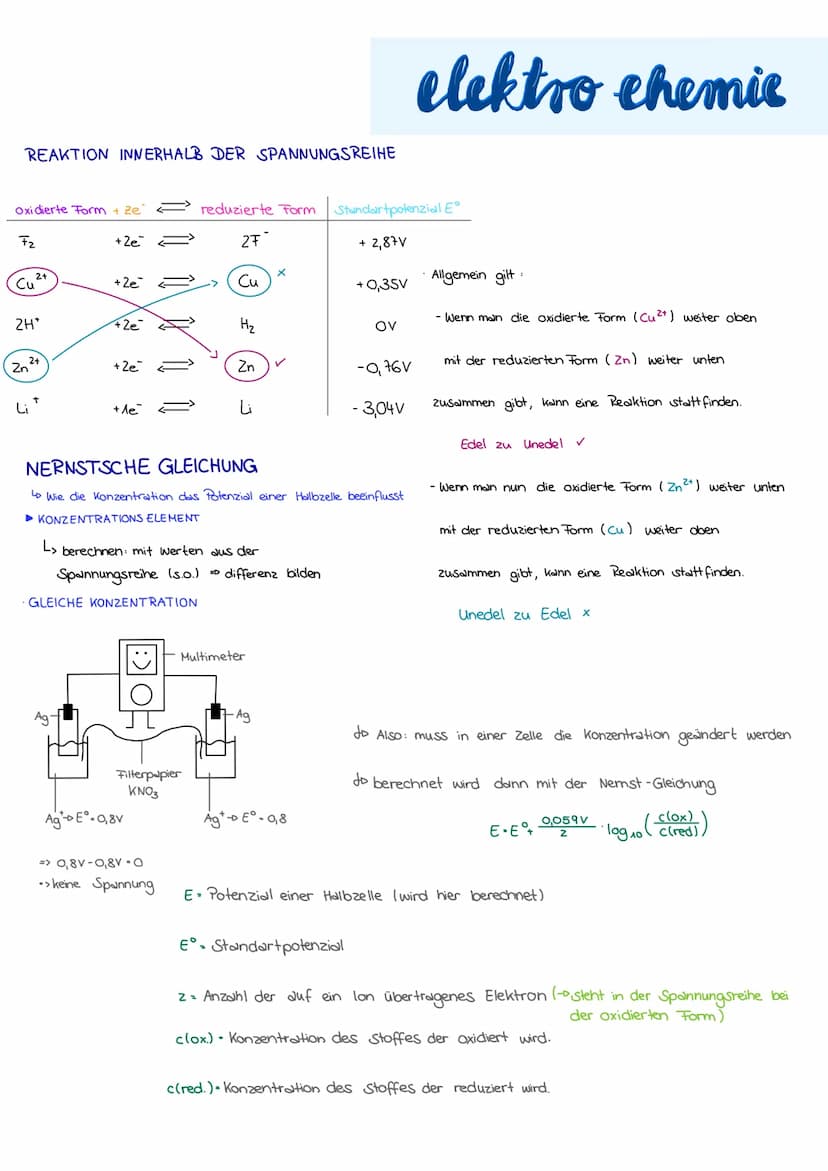 elektro chemie
REAKTION INNERHALB DER SPANNUNGSREIHE
oxidierte Form + ze⁻ ⇌ reduzierte Form Standartpotenzial E°
F₂ +2e⁻ ⇌ 2F⁻ + 2,87V
Cu²⁺ +2e⁻ ⇌ Cu × +0,35V
2H⁺ +2e⁻ ⇌ H₂ 0V
Zn²⁺ +2e⁻ ⇌ Zn ✓ -0,76V
Li⁺ +1e⁻ ⇌ Li - 3,04V
· Allgemein gilt:
- Wenn man die oxidierte Form (Cu²⁺) weiter oben
mit der reduzierten Form (Zn) weiter unten
zusammen gibt, kann eine Reaktion stattfinden.
Edel zu Unedel ✓
- Wenn man nun die oxidierte Form (Zn²⁺) weiter unten
mit der reduzierten Form (Cu) weiter oben
zusammen gibt, kann eine Reaktion stattfinden.
Unedel zu Edel ×
NERNSTSCHE GLEICHUNG
↳ Wie die Konzentration das Potenzial einer Halbzelle beeinflusst
▶ KONZENTRATIONSELEMENT
↳ berechnen: mit Werten aus der
Spannungsreihe (s.o.) ⇒ differenz bilden
· GLEICHE KONZENTRATION
Multimeter
Ag Ag
Filterpapier
KNO₃
Ag⁺→ E°=0,8V Ag⁺→ E°=0,8
=> 0,8V-0,8V=0
-> keine Spannung
↳ Also: muss in einer Zelle die Konzentration geändert werden
↳ berechnet wird dann mit der Nernst-Gleichung
E=E°+ 0,059V/z · log₁₀ (c(ox)/c(red))
E = Potenzial einer Halbzelle (wird hier berechnet)
E° = Standartpotenzial
z = Anzahl der auf ein Ion übertragenes Elektron (→ steht in der Spannungsreihe bei
der oxidierten Form)
c(ox.) = Konzentration des Stoffes der oxidiert wird.
c(red.) = Konzentration des Stoffes der reduziert wird.